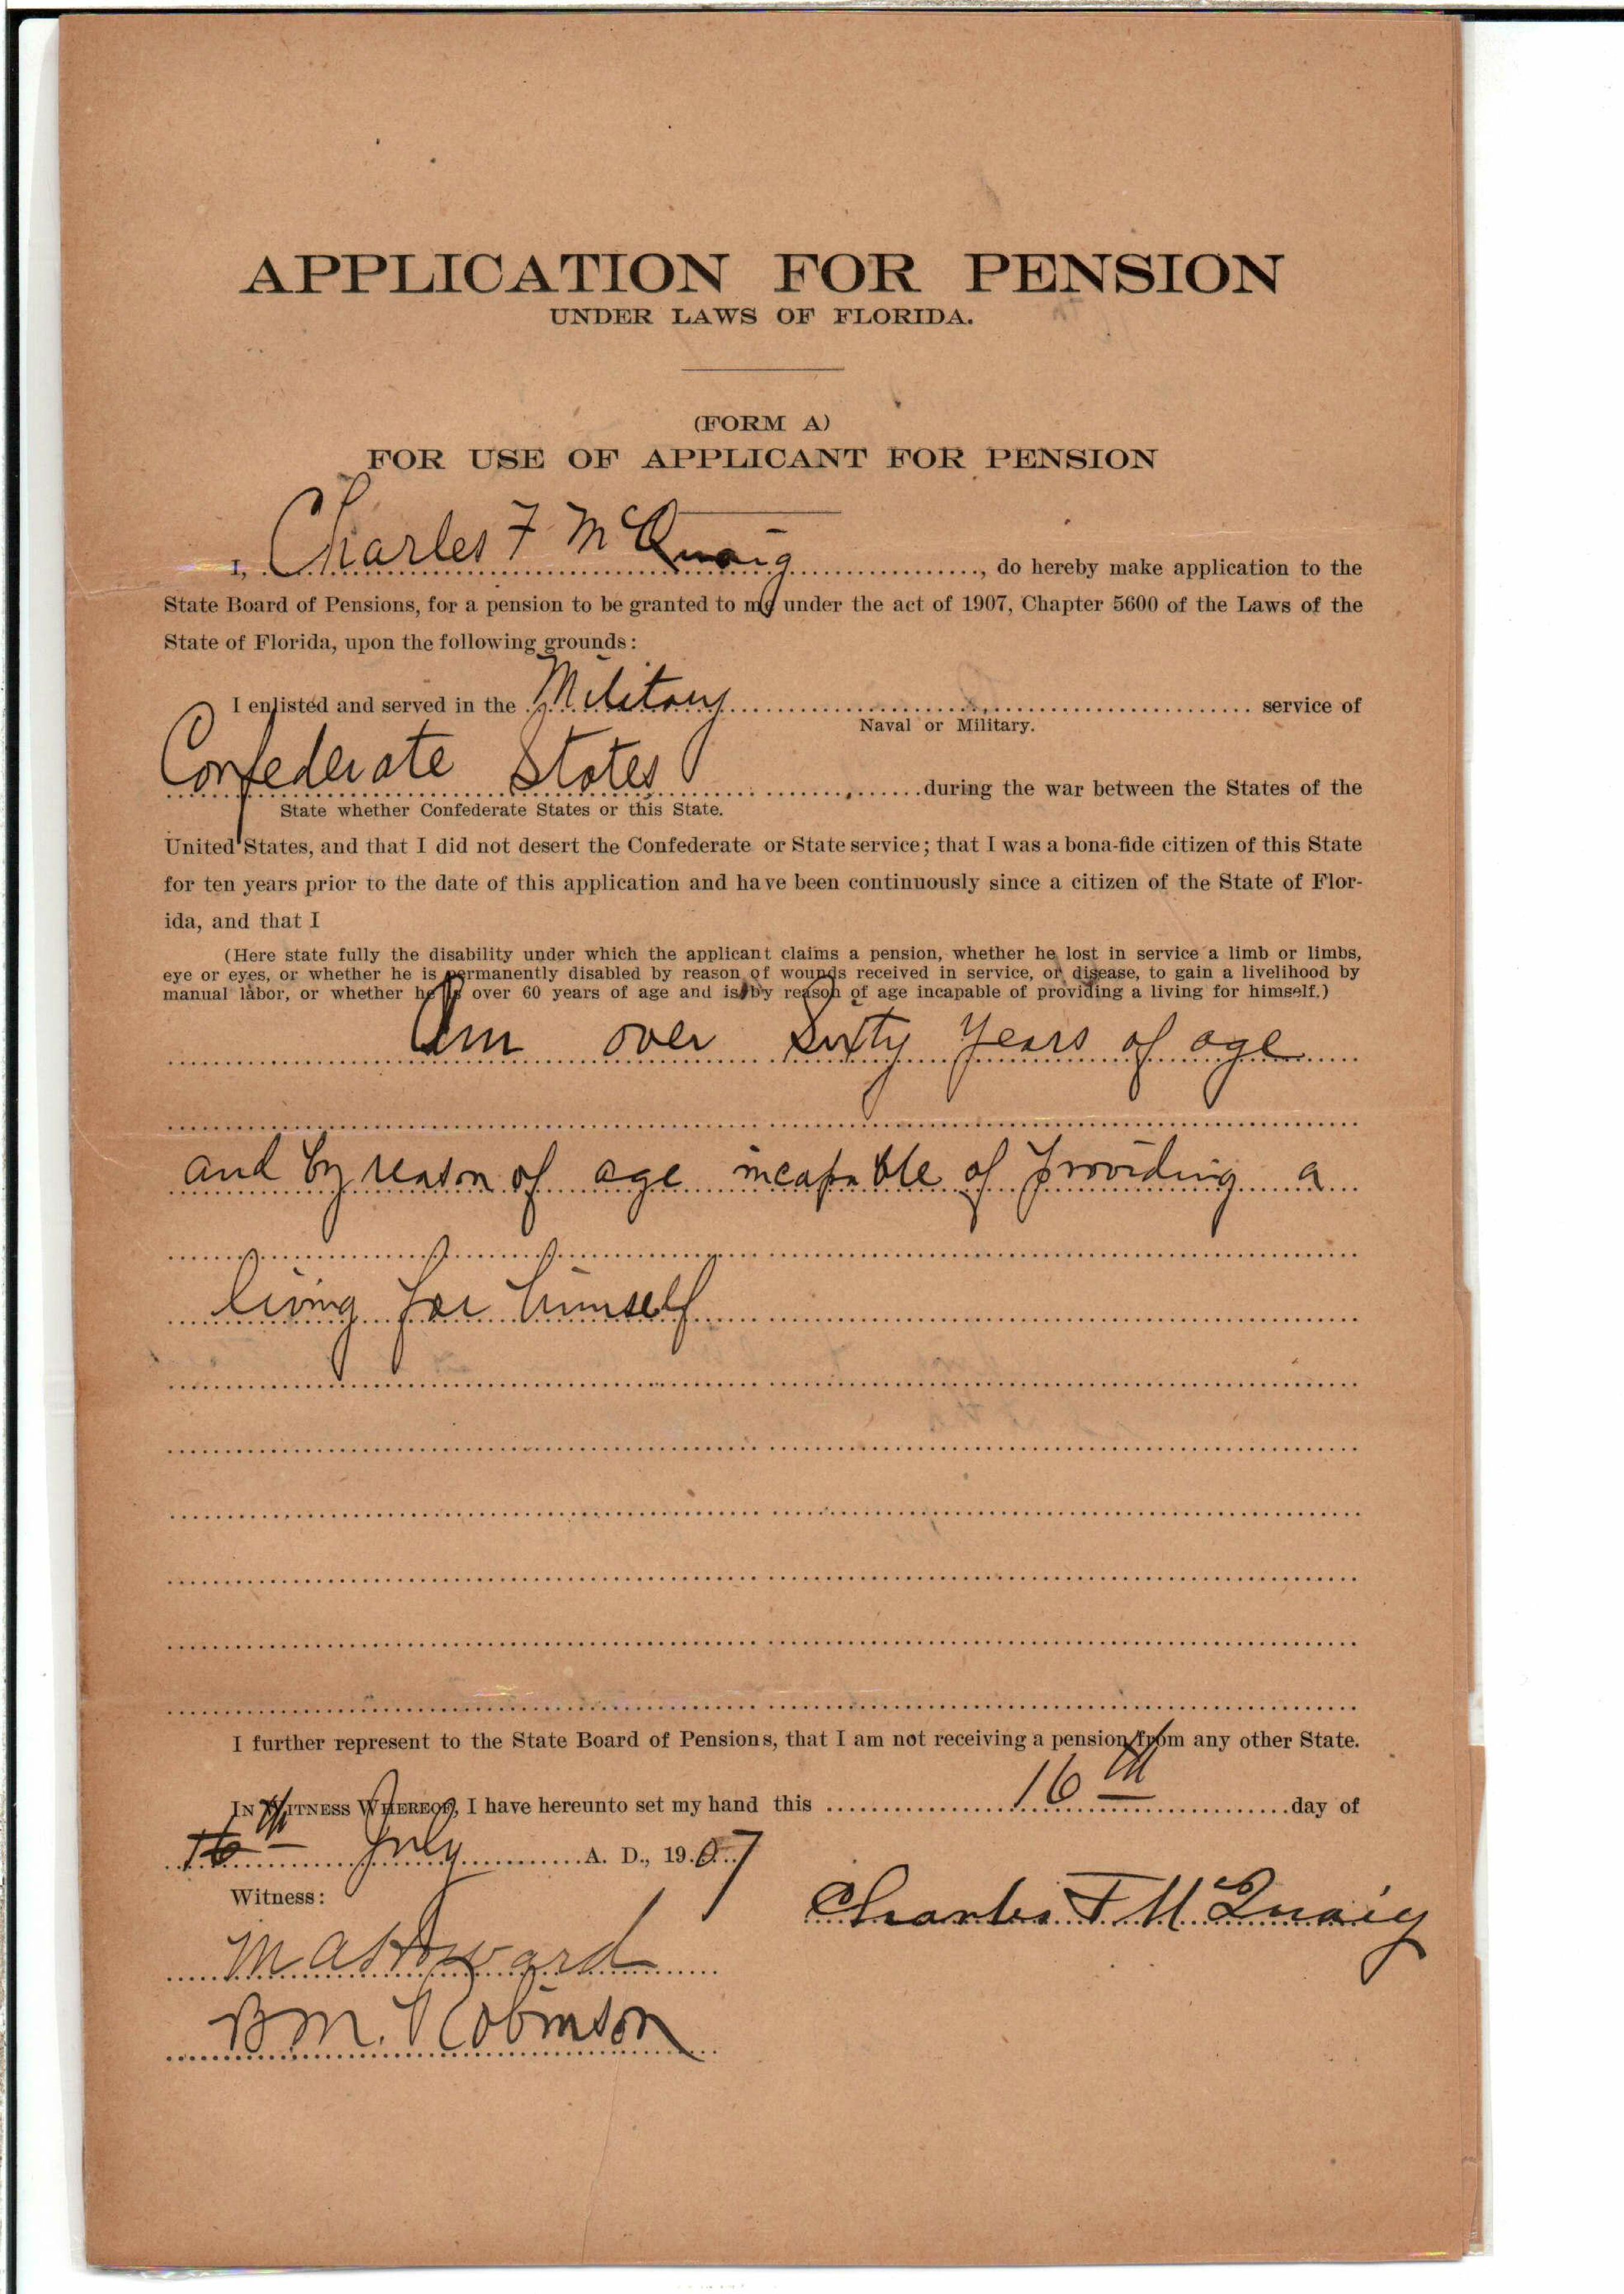 APPLICATION FOR PENSION
UNDER LAWS OF FLORIDA.
(FORM A)
FOR USE OF APPLICANT FOR PENSION
I, Charles F McQuaig, do hereby make application to the
State Board of Pensions, for a pension to be granted to me under the act of 1907, Chapter 5600 of the Laws of the
State of Florida, upon the following grounds:
I enlisted and served in the Military service of
Naval or Military.
Confederate States during the war between the States of the
State whether Confederate States or this State.
United States, and that I did not desert the Confederate or State service; that I was a bona-fide citizen of this State
for ten years prior to the date of this application and have been continuously since a citizen of the State of Flor-
ida, and that I
(Here state fully the disability under which the applicant claims a pension, whether he lost in service a limb or limbs,
eye or eyes, or whether he is permanently disabled by reason of wounds received in service, or disease, to gain a livelihood by
manual labor, or whether he is over 60 years of age and is by reason of age incapable of providing a living for himself.)
Am over Sixty Years of age
and by reason of age incapable of providing a
living for himself
I further represent to the State Board of Pensions, that I am not receiving a pension from any other State.
IN WITNESS WHEREOF, I have hereunto set my hand this 16th day of
16th July A. D., 1907
Witness:
Charles F McQuaig
M A Howard
B M. Robinson